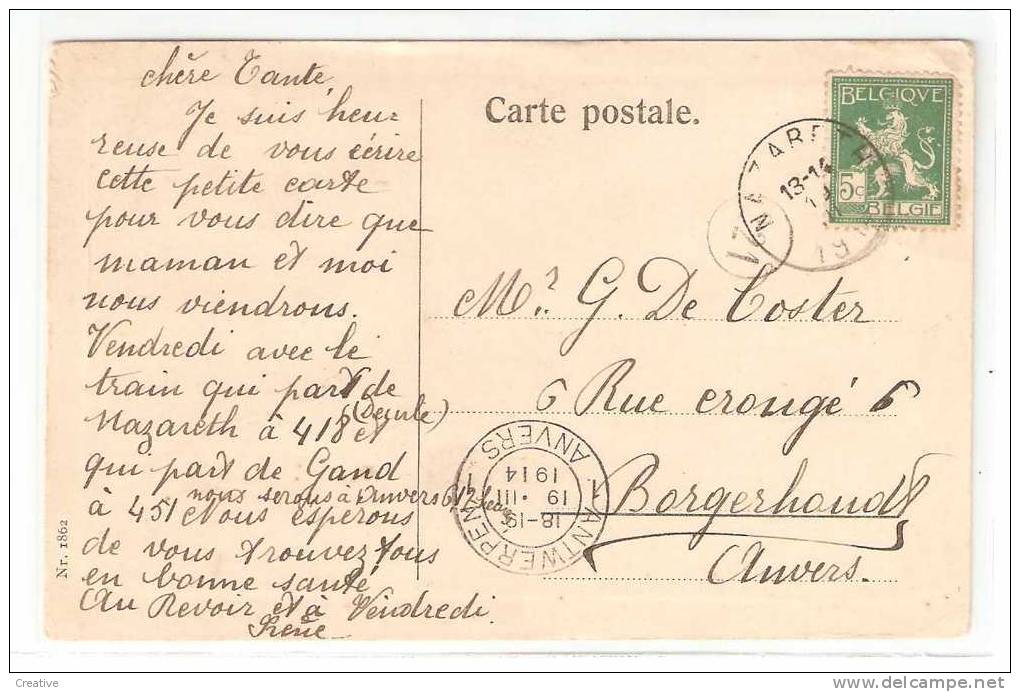 chère Tante,
Je suis heu-
reuse de vous écrire
cette petite carte
pour vous dire que
maman et moi
nous viendrons.
Vendredi avec le
train qui part de
Nazareth à 418 et
qui part de Gand
nous serons à Anvers 6 1/2
à 451 Nous esperons
de vous trouvez tous
en bonne santé
Au Revoir et à Vendredi.
Nr. 1862
Carte postale.
BELGIQVE
5c
BELGIE
NAZARETH
13-14
19
M.r G. De Coster
6 Rue crongé 6
Borgerhoudt
Anvers.
1 ANTWERPEN 1
18-19
19 · III
1914
ANVERS
Creative
www.delcampe.net